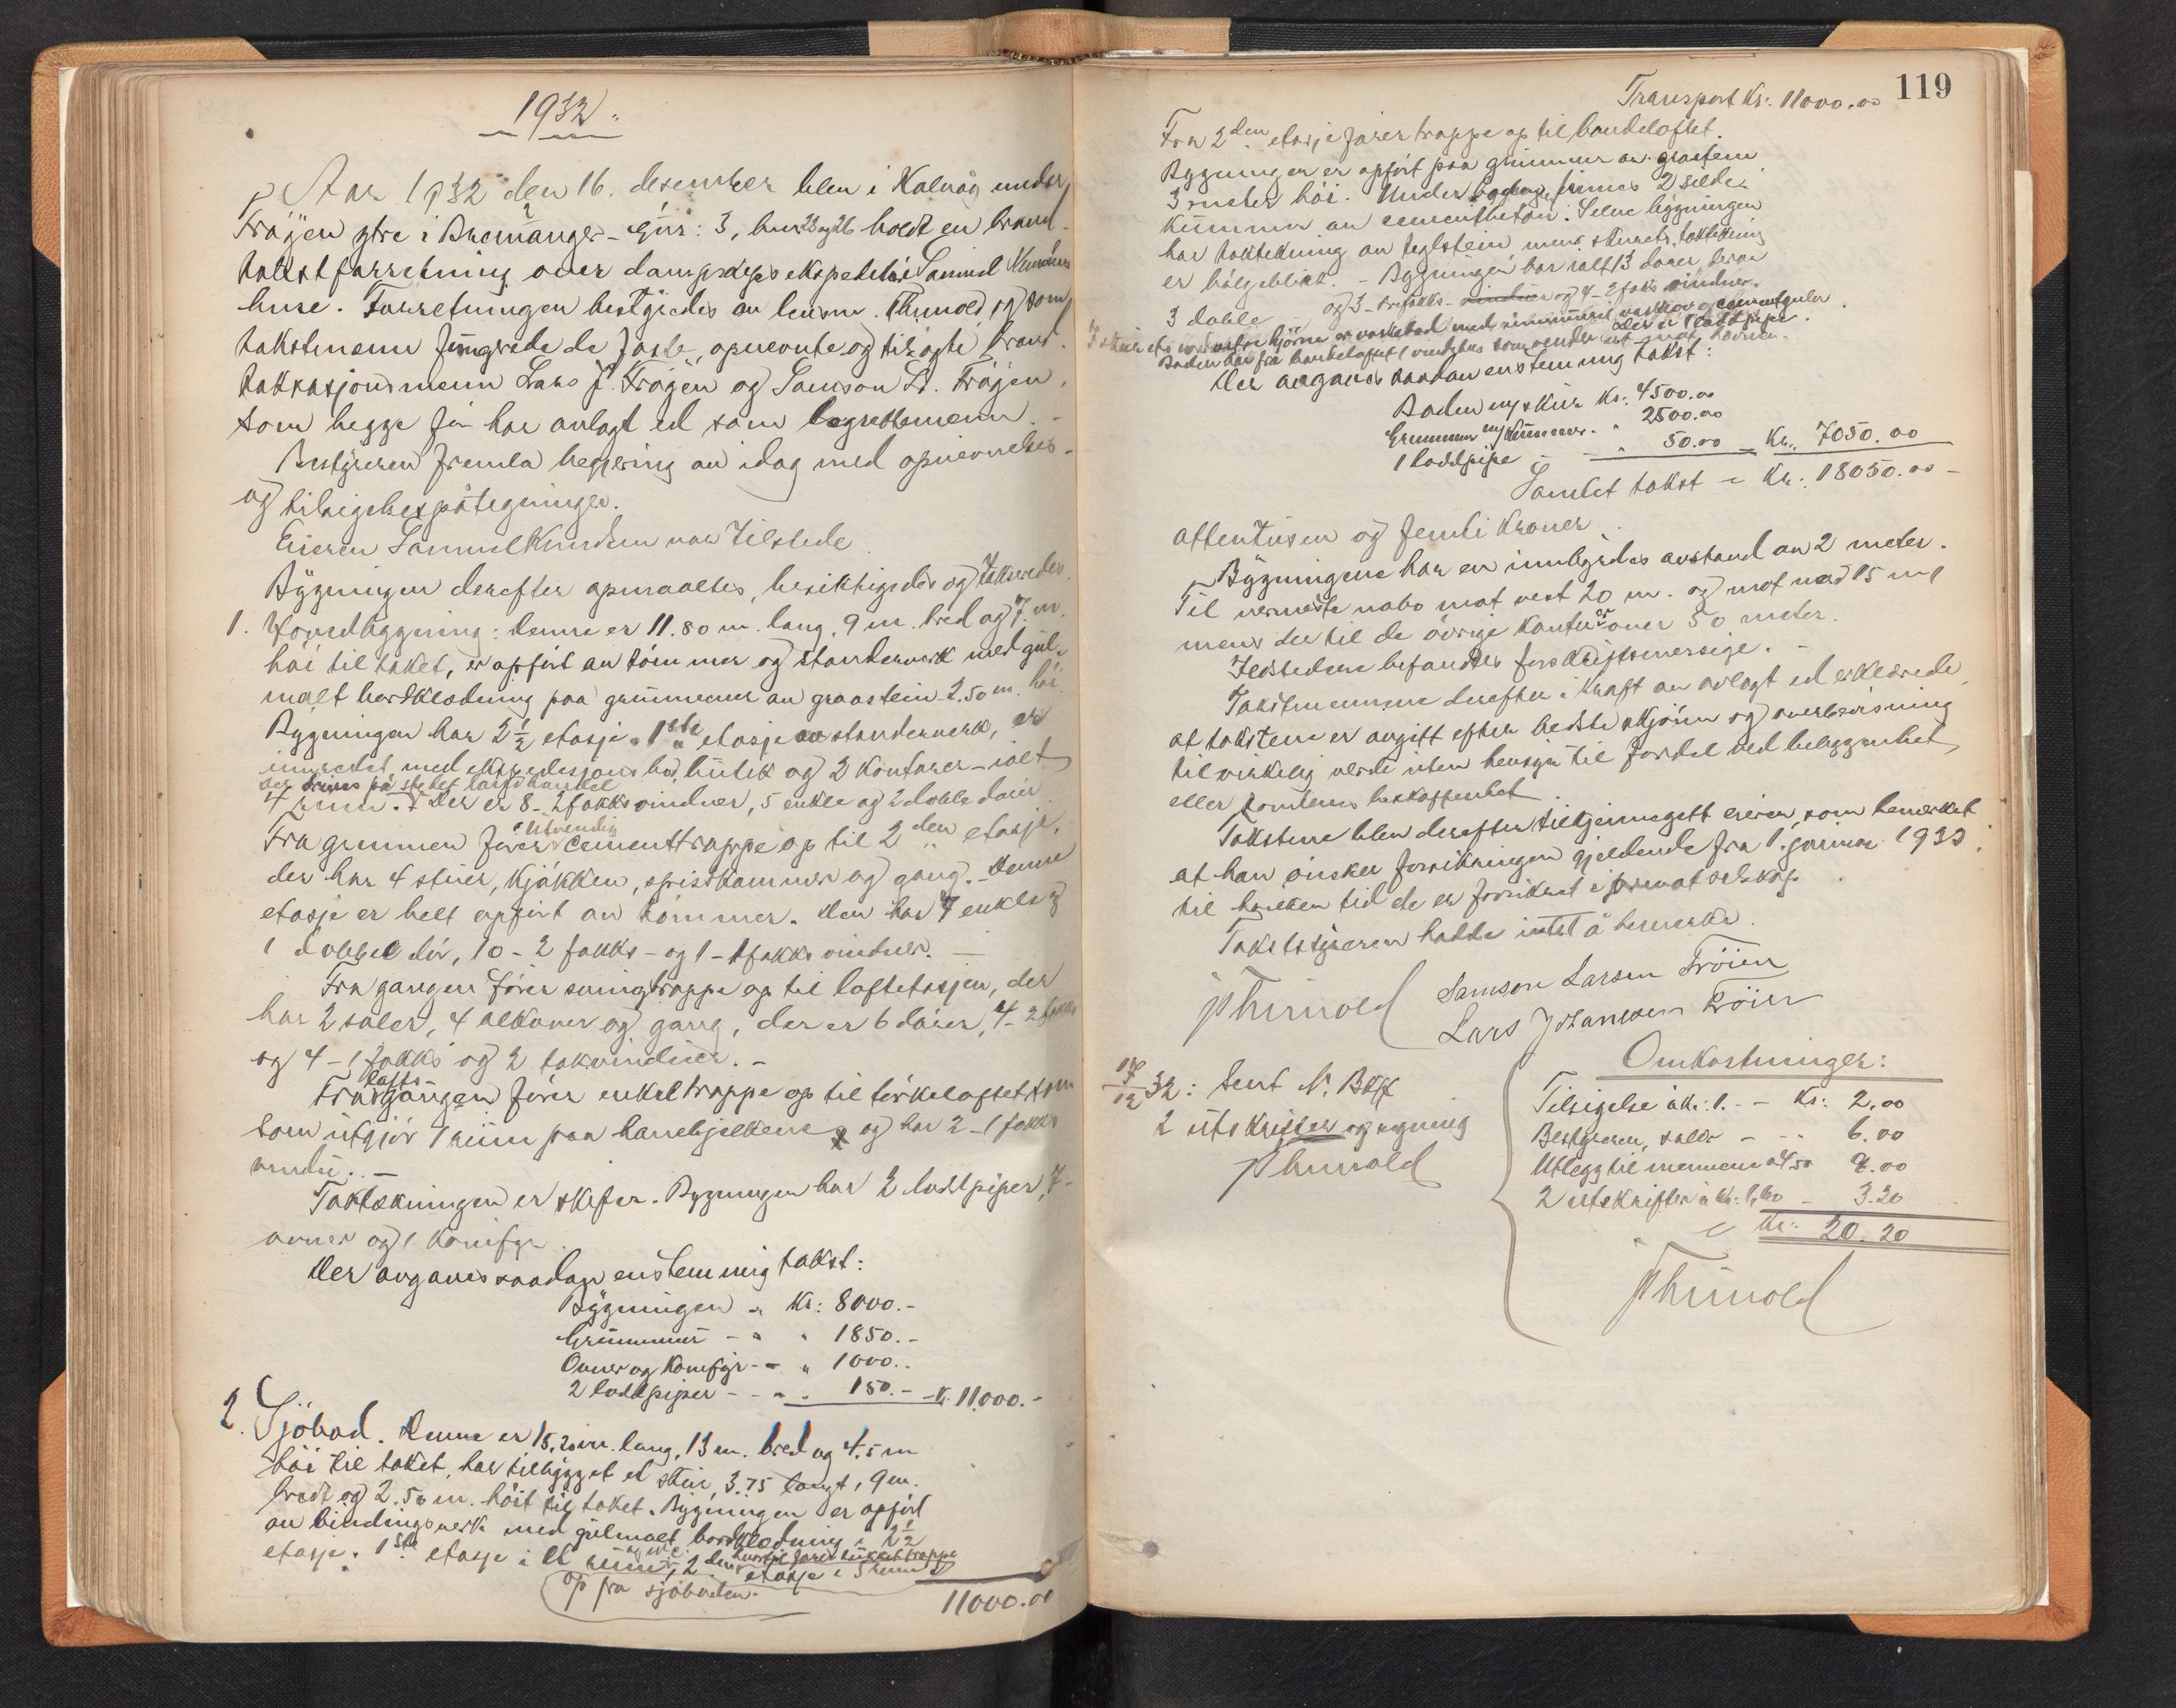 1932.
Aar 1932 den 16. desember blev i Kalvåg under
Fröyen ytre i Bremanger - Gnr: 3, bnr 22 og 26 holdt en brand-
takstforretning over dampskipsekspeditör Samuel Knudsen
huse. Forretningen bestyredes av lensm. Thunold og som
takstmenn fungerede de faste, opnevnte og tilsagte brand-
taksasjonsmenn Lars J. Fröyen og Samson L. Fröyen,
som begge för har avlagt ed som lagrettemenn. -
Bestyreren fremla begjering av idag med opnevnelses-
og tilsigelsespåtegninger.
Eieren Samuel Knudsen var tilstede.
Bygningen derefter opmaaltes, besiktigedes og takseredes.
1. Hovedbygning: Denne er 11.80 m. lang, 9 m. bred og 7. m.
höi til taket, er opfört av tömmer og standerverk med gul-
malt bordklædning paa grunnmur av graastein 2.50 m. höi
Bygningen har 2 1/2 etasje. 1ste etasje av standerverk, er
innredet med ekspedisjons bod, butik og 2 kontorer - ialt
der drives på stedet landhandel
4 rum. Der er 8 - 2 fakks vinduer, 5 enkle og 2 doble dörer
Fra grunnen förer utvendig cementtrappe op til 2den etasje,
der har 4 stuer, kjökken, spisekammer og gang. - Denne
etasje er helt opfört av tömmer. Den har 7 enkle og
1 dobbel dör, 10 - 2 fakks - og 1 - 1 fakks vinduer. -
Fra gangen förer svingtrappe op til loftetasjen, der
har 2 saler, 4 alkover og gang, der er 6 dörer, 4 - 2 fakks
og 4 - 1 fakks og 2 takvinduer. -
Fra loftsgangen förer enkel trappe op til törkeloftet som
som utgjör 1 rum paa hanebjelkene og har 2 - 1 fakks
vindu. -
Taktekningen er skifer. Bygningen har 2 loddpiper, 7 -
ovner og 1 komfyr.
Der avgaves saadan enstemmig takst:
Bygningen - Kr: 8000.-
Grunnmur - " " 1850.-
Ovner og komfyr - - " 1000.-
2 loddpiper - - " . 150.- - Kr. 11.000.-
2. Sjöbod. Denne er 15,20 m. lang, 13 m. bred og 4.5 m
höi til taket, har tilbygget et skur, 3.75 langt, 9 m.
bredt og 2.50 m. höit til taket. Bygningen er opfört
av bindingsverk med gulmalt bordklædning i 2 1/2
etasje. 1ste etasje i et rum og w.c., 2den etasje i 5 rum
hvortil förer lukket trappe
op fra sjöboden.
11000.00
119
Transport Kr: 11000.00
Fra 2den etasje förer trappe op til bandeloftet.
Bygningen er opfört paa grunnmur av graastein
3 meter höi. Under bygningen finnes 2 silde-
kummer av cementbeton. Selve bygningen
har taktekning av teglstein mens skurets taktekning
er bölgeblikk. - Bygningen har ialt 13 dörer derav
3 doble og 3 - trefakks - vinduer og 4 - 2 faks vinduer.
I skurets nordvestre hjörne er vaskebod med innmuret vaskkar og cementgulv. der er 1 loddpipe.
Boden har fra bandeloftet 1 vindehus som vender ut mot havnen.
Der avgaves saadan enstemmig takst:
Boden m/ skur Kr: 4500.00
Grunnmur m/ kummer - " 2500.00
1 loddpipe - - " 50.00 = Kr. 7050.00
Samlet takst = Kr: 18050.00 -
attentusen og femti kroner.
Bygningene har en innbyrdes avstand av 2 meter.
Til nermeste nabo mot vest 20 m. og mot nord 15 m
mens der til de övrige kanter er over 50 meter.
Ildstedene befandtes forskriftsmessige. -
Takstmennene derefter i kraft av avlagt ed erklærede,
at taksten er avgitt efter bedste skjönn og overbevisning
til virkelig verdi uten hensyn til fordel ved beliggenhet
eller tomtens beskaffenhet.
Taksten blev derefter tilkjennegitt eieren, som bemerket
at han önsker forsikringen gjeldende fra 1. januar 1933.
til hvilken tid de er forsikret i privat selskap.
Takstbestyreren hadde intet å bemerke.
JThunold
Samson Larsen Fröien
Lars Johannesen Fröien
17/12 32: Sent N. Bkf
2 utskrifter og regning
JThunold
Omkostninger:
Tilsigelse à kr: 1. - - Kr: 2.00
Bestyreren, salær - - " 6.00
Utlegg til mennene à 4.50 9.00
2 utskrifter à kr: 1,60 - 3.20
= Kr: 20.20
JThunold